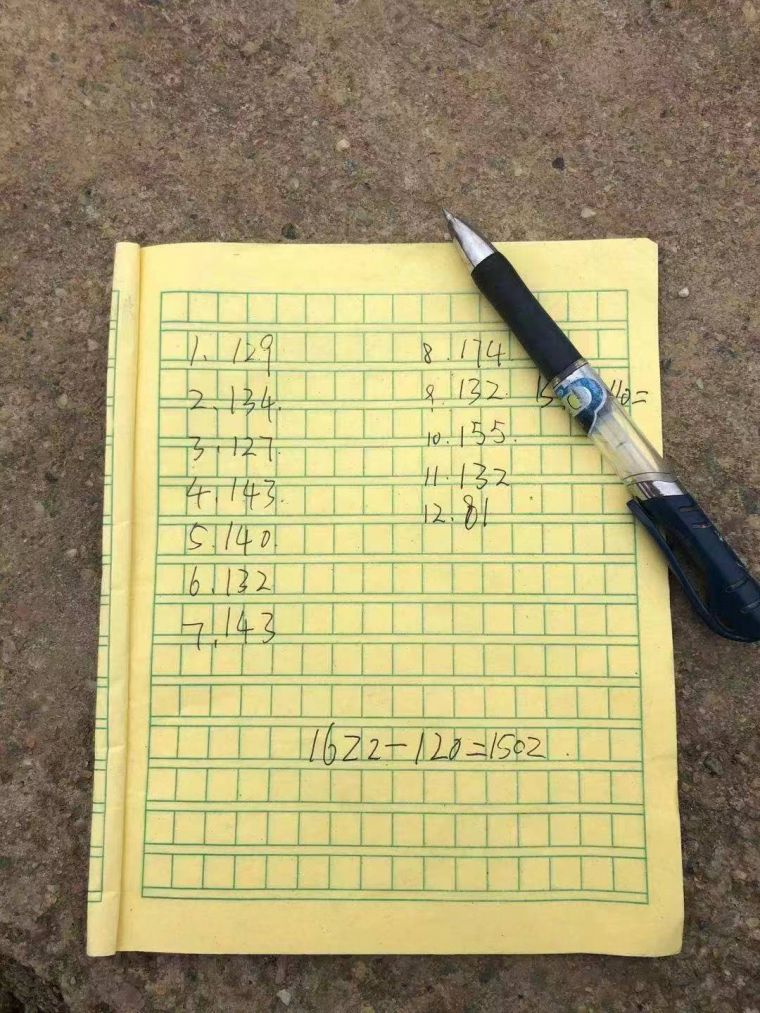 1. 129
2. 134.
3. 127.
4. 143.
5. 140.
6. 132
7. 143
8. 174
9. 132
10. 155.
11. 132
12. 81
1622-120=1502.